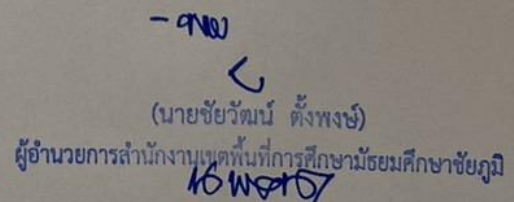 - ทราบ
(นายชัยวัฒน์ ตั้งพงษ์)
ผู้อำนวยการสำนักงานเขตพื้นที่การศึกษามัธยมศึกษาชัยภูมิ
16 พ.ย. 67